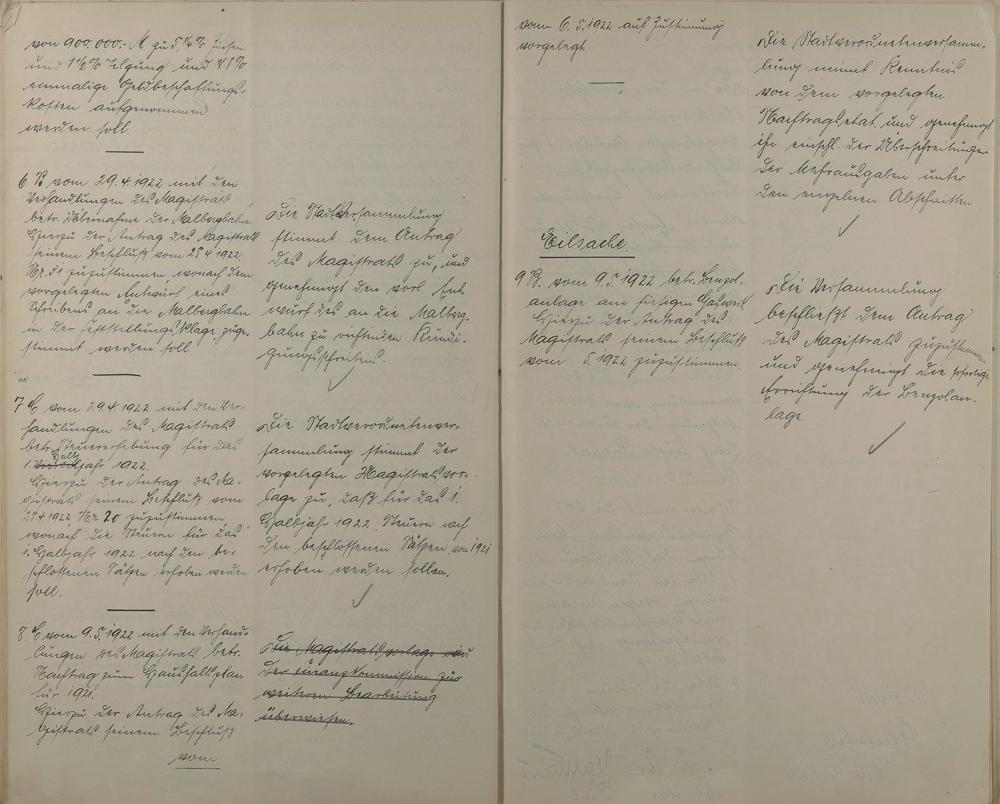 von 900.000.- M zu 5 1/4 % Zinsen
und 1 1/2 % Tilgung und 4 1 %
einmalige Geldbeschaffungs-
kosten aufgenommen
werden soll
6 B vom 29.4.1922 mit den
Verhandlungen des Magistrats
betr. Übernahme der Malbergbahn.
Hierzu der Antrag des Magistrats
seinem Beschluß vom 28.4.1922
Nr. 51 zuzustimmen wonach dem
vorgelegten Entwurf eines
Schreibens an die Malbergbahn
in der Feststellungsklage zuge-
stimmt werden soll
Die Stadtversammlung
stimmt dem Antrag
des Magistrats zu, und
genehmigt den vorl. Ent-
wurf des an die Malberg-
bahn zu richtenden Kündi-
gungsschreibens.
7 C vom 29.4.1922 mit den Ver-
handlungen des Magistrats
betr. Steuererhebung für das
1. Viertel Halbjahr 1922.
Hierzu der Antrag des Ma-
gistrats seinem Beschluß vom
28.4.1922, Nr. 20 zuzustimmen,
wonach die Steuern für das
1. Halbjahr 1922 nach den be-
schlossenen Sätzen erhoben werden
soll.
Die Stadtverordnetenver-
sammlung stimmt der
vorgelegten Magistratsvor-
lage zu, daß für das 1.
Halbjahr 1922 Steuern nach
den beschlossenen Sätzen von 1921
erhoben werden sollen.
8 C vom 9.5.1922 mit den Verhand-
lungen des Magistrats betr.
Nachtrag zum Haushaltsplan
für 1921.
Hierzu der Antrag des Ma-
gistrats seinem Beschluß
vom
Die Magistratsvorlage wird
der Finanzkommission zur
weiteren Bearbeitung
überwiesen.
vom 6.5.1922 auf Zustimmung
vorgelegt
Die Stadtverordnetenversamm-
lung nimmt Kenntnis
von dem vorgelegten
Nachtragsetat und genehmigt
ihn einschl. der Überschreitungen
der Mehrausgaben unter
den einzelnen Abschnitten
Eilsache.
9 B. vom 9.5.1922 betr. Benzol-
anlage am hiesigen Gaswerk
Hierzu der Antrag des
Magistrats seinem Beschluß
vom 5.1922 zuzustimmen
Die Versammlung
beschließt dem Antrag
des Magistrats zuzustimmen
und genehmigt die sofortige
Errichtung der Benzolan-
lage